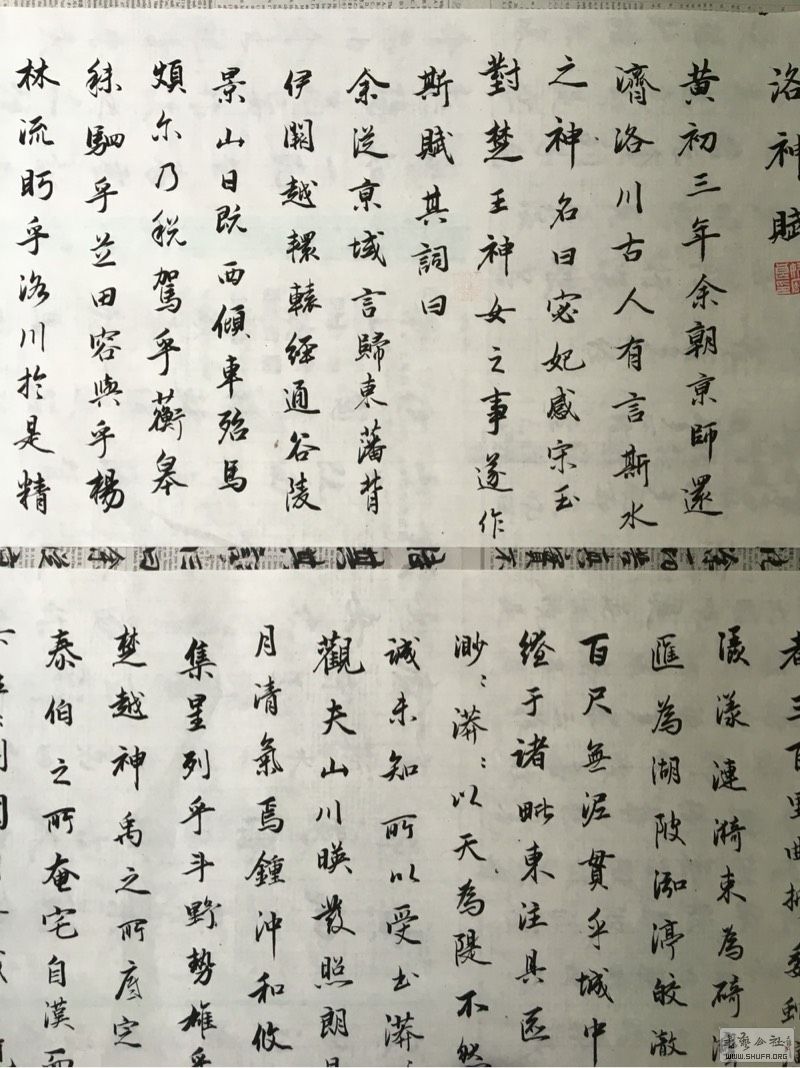 洛神賦
黄初三年余朝京師還
濟洛川古人有言斯水
之神名曰宓妃感宋玉
對楚王神女之事遂作
斯賦其詞曰
余從京域言歸東藩背
伊闕越轘轅經通谷陵
景山日既西傾車殆馬
煩尔乃税駕乎蘅皋
秣駟乎芝田容與乎楊
林流眄乎洛川於是精
者三百里曲折委
漾漣漪東為碕
匯為湖陂泓渟皎澈
百尺無泥貫乎城中
縫于諸毗東注具區
渺：漭：以天為隄不然
誠未知所以受
觀夫山川暎發照朗
月清氣焉鍾沖和攸
集星列乎斗野勢雄乎
楚越神禹之所底定
泰伯之所奄宅自漢而
WWW.SHUFA.ORG